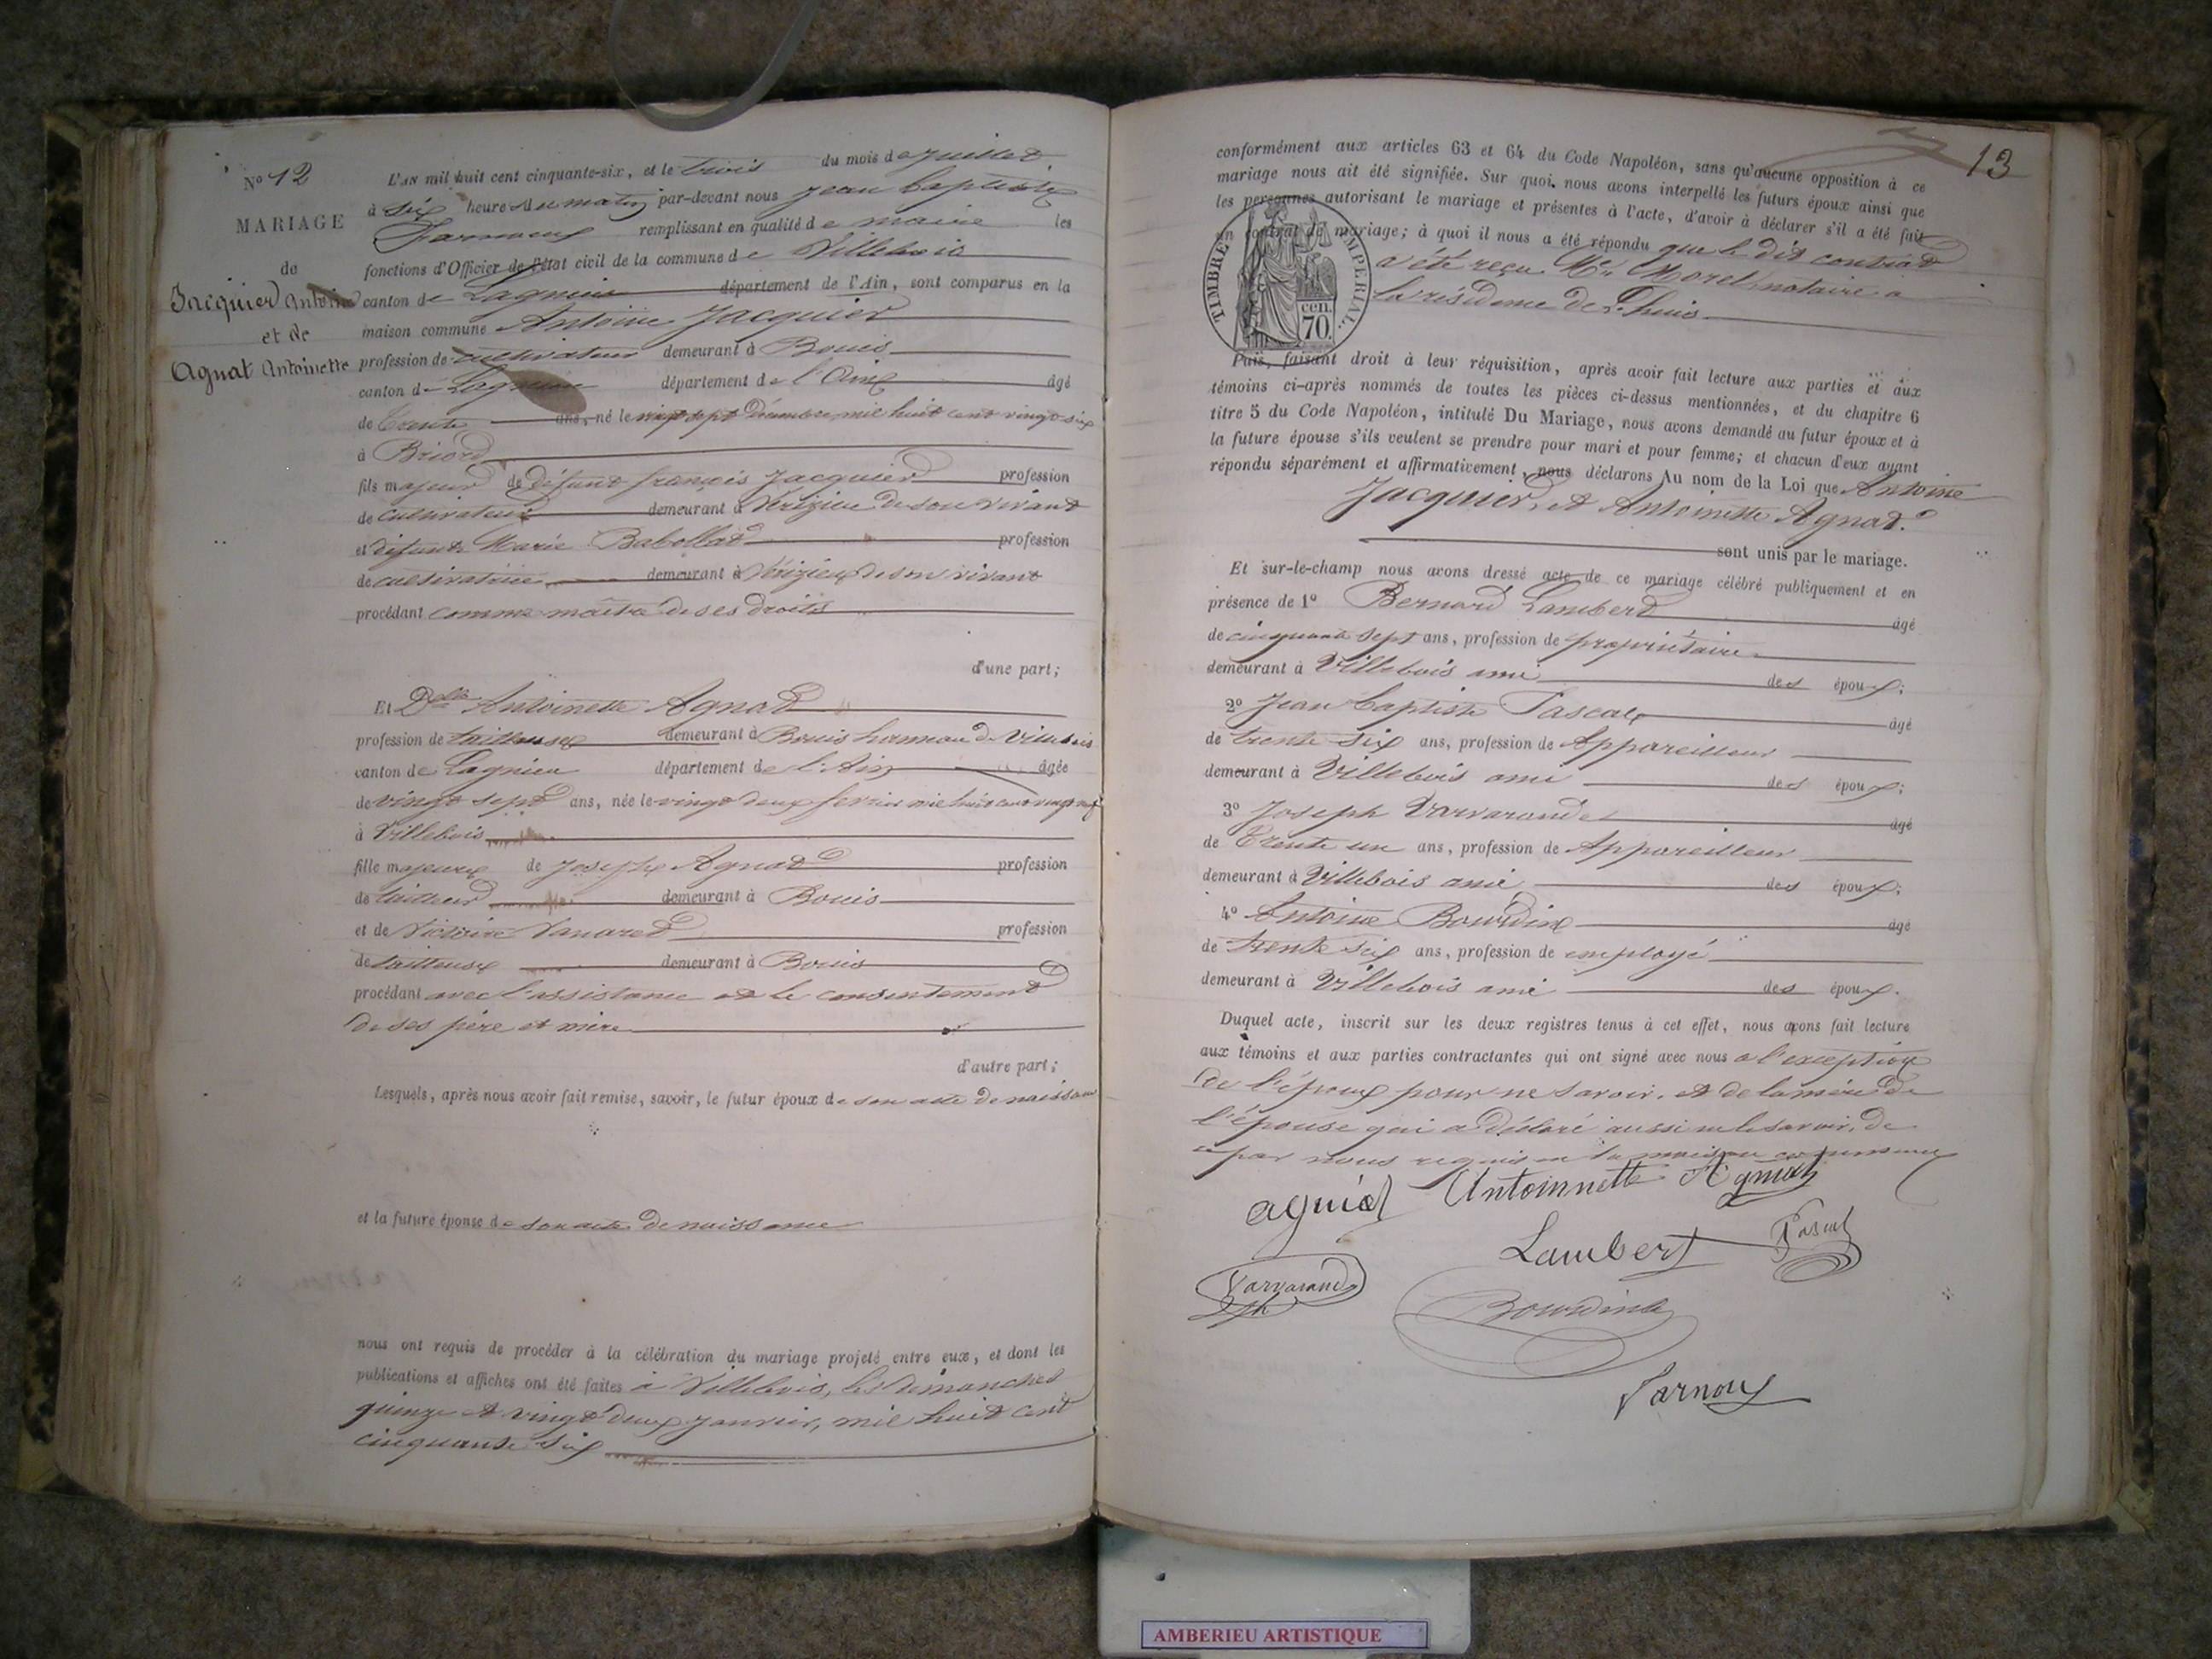 No 12
MARIAGE
de
Jacquier Antoine
et de
Agnat Antoinette
L'AN mil huit cent cinquante-six, et le trois du mois de juillet
à six heures du matin par-devant nous jean baptiste
remplissant en qualité de maire les
fonctions d'Officier de l'état civil de la commune de Villebois
canton de Lagnieu département de l'Ain, sont comparus en la
maison commune Antoine Jacquier
profession de cultivateur demeurant à Bouis
canton de Lagnieu département de l'Ain âgé
de trente ans, né le vingt sept décembre mil huit cent vingt six
à Briord
fils majeur de défunt françois Jacquier profession
de cultivateur demeurant à Vérizieu de son vivant
et défunte Marie Babollat profession
de cultivatrice demeurant à Vérizieu de son vivant
procédant comme maître de ses droits
d'une part;
Et Dlle Antoinette Agnat
profession de tailleuse demeurant à Bouis hameau de Villebois
canton de Lagnieu département de l'Ain âgée
de vingt sept ans, née le vingt deux fevrier mil huit cent vingt neuf
à Villebois
fille majeure de Joseph Agnat profession
de tailleur demeurant à Bouis
et de Victoire Vanaret profession
de tailleuse demeurant à Bouis
procédant avec l'assistance et le consentement
de ses père et mère
d'autre part;
Lesquels, après nous avoir fait remise, savoir, le futur époux de son acte de naissance
et la future épouse de son acte de naissance
nous ont requis de procéder à la célébration du mariage projeté entre eux, et dont les
publications et affiches ont été faites à Villebois, les dimanches
quinze et vingt deux janvier, mil huit cent
cinquante six
13
conformément aux articles 63 et 64 du Code Napoléon, sans qu'aucune opposition à ce
mariage nous ait été signifiée. Sur quoi, nous avons interpellé les futurs époux ainsi que
les personnes autorisant le mariage et présentes à l'acte, d'avoir à déclarer s'il a été fait
un contrat de mariage; à quoi il nous a été répondu que le dit contrat
a été reçu Me Morel notaire a
la résidence de L'huis
TIMBRE IMPERIAL.
cen. 70.
Puis, faisant droit à leur réquisition, après avoir fait lecture aux parties et aux
témoins ci-après nommés de toutes les pièces ci-dessus mentionnées, et du chapitre 6
titre 5 du Code Napoléon, intitulé Du Mariage, nous avons demandé au futur époux et à
la future épouse s'ils veulent se prendre pour mari et pour femme; et chacun d'eux ayant
répondu séparément et affirmativement, nous déclarons Au nom de la Loi que Antoine
Jacquier, et Antoinette Agnat.
sont unis par le mariage.
Et sur-le-champ nous avons dressé acte de ce mariage célébré publiquement et en
présence de 1o Bernard Lambert âgé
de cinquante sept ans, profession de propriétaire
demeurant à Villebois ami des époux;
2o Jean baptiste Pascal âgé
de trente six ans, profession de Appareilleur
demeurant à Villebois ami des époux;
3o Joseph Varvarande âgé
de trente un ans, profession de Appareilleur
demeurant à Villebois ami des époux;
4o Antoine Bourdin âgé
de trente six ans, profession de employé
demeurant à Villebois ami des époux.
Duquel acte, inscrit sur les deux registres tenus à cet effet, nous avons fait lecture
aux témoins et aux parties contractantes qui ont signé avec nous a l'exception
de l'époux pour ne savoir, et de la mère de
l'épouse qui a déclaré aussi ne le savoir, de
ce par nous requis en la maison commune
agniat Antoinnette Agniat
Lambert Pascal
Varvarande
Bourdin
Varnoux
AMBERIEU ARTISTIQUE